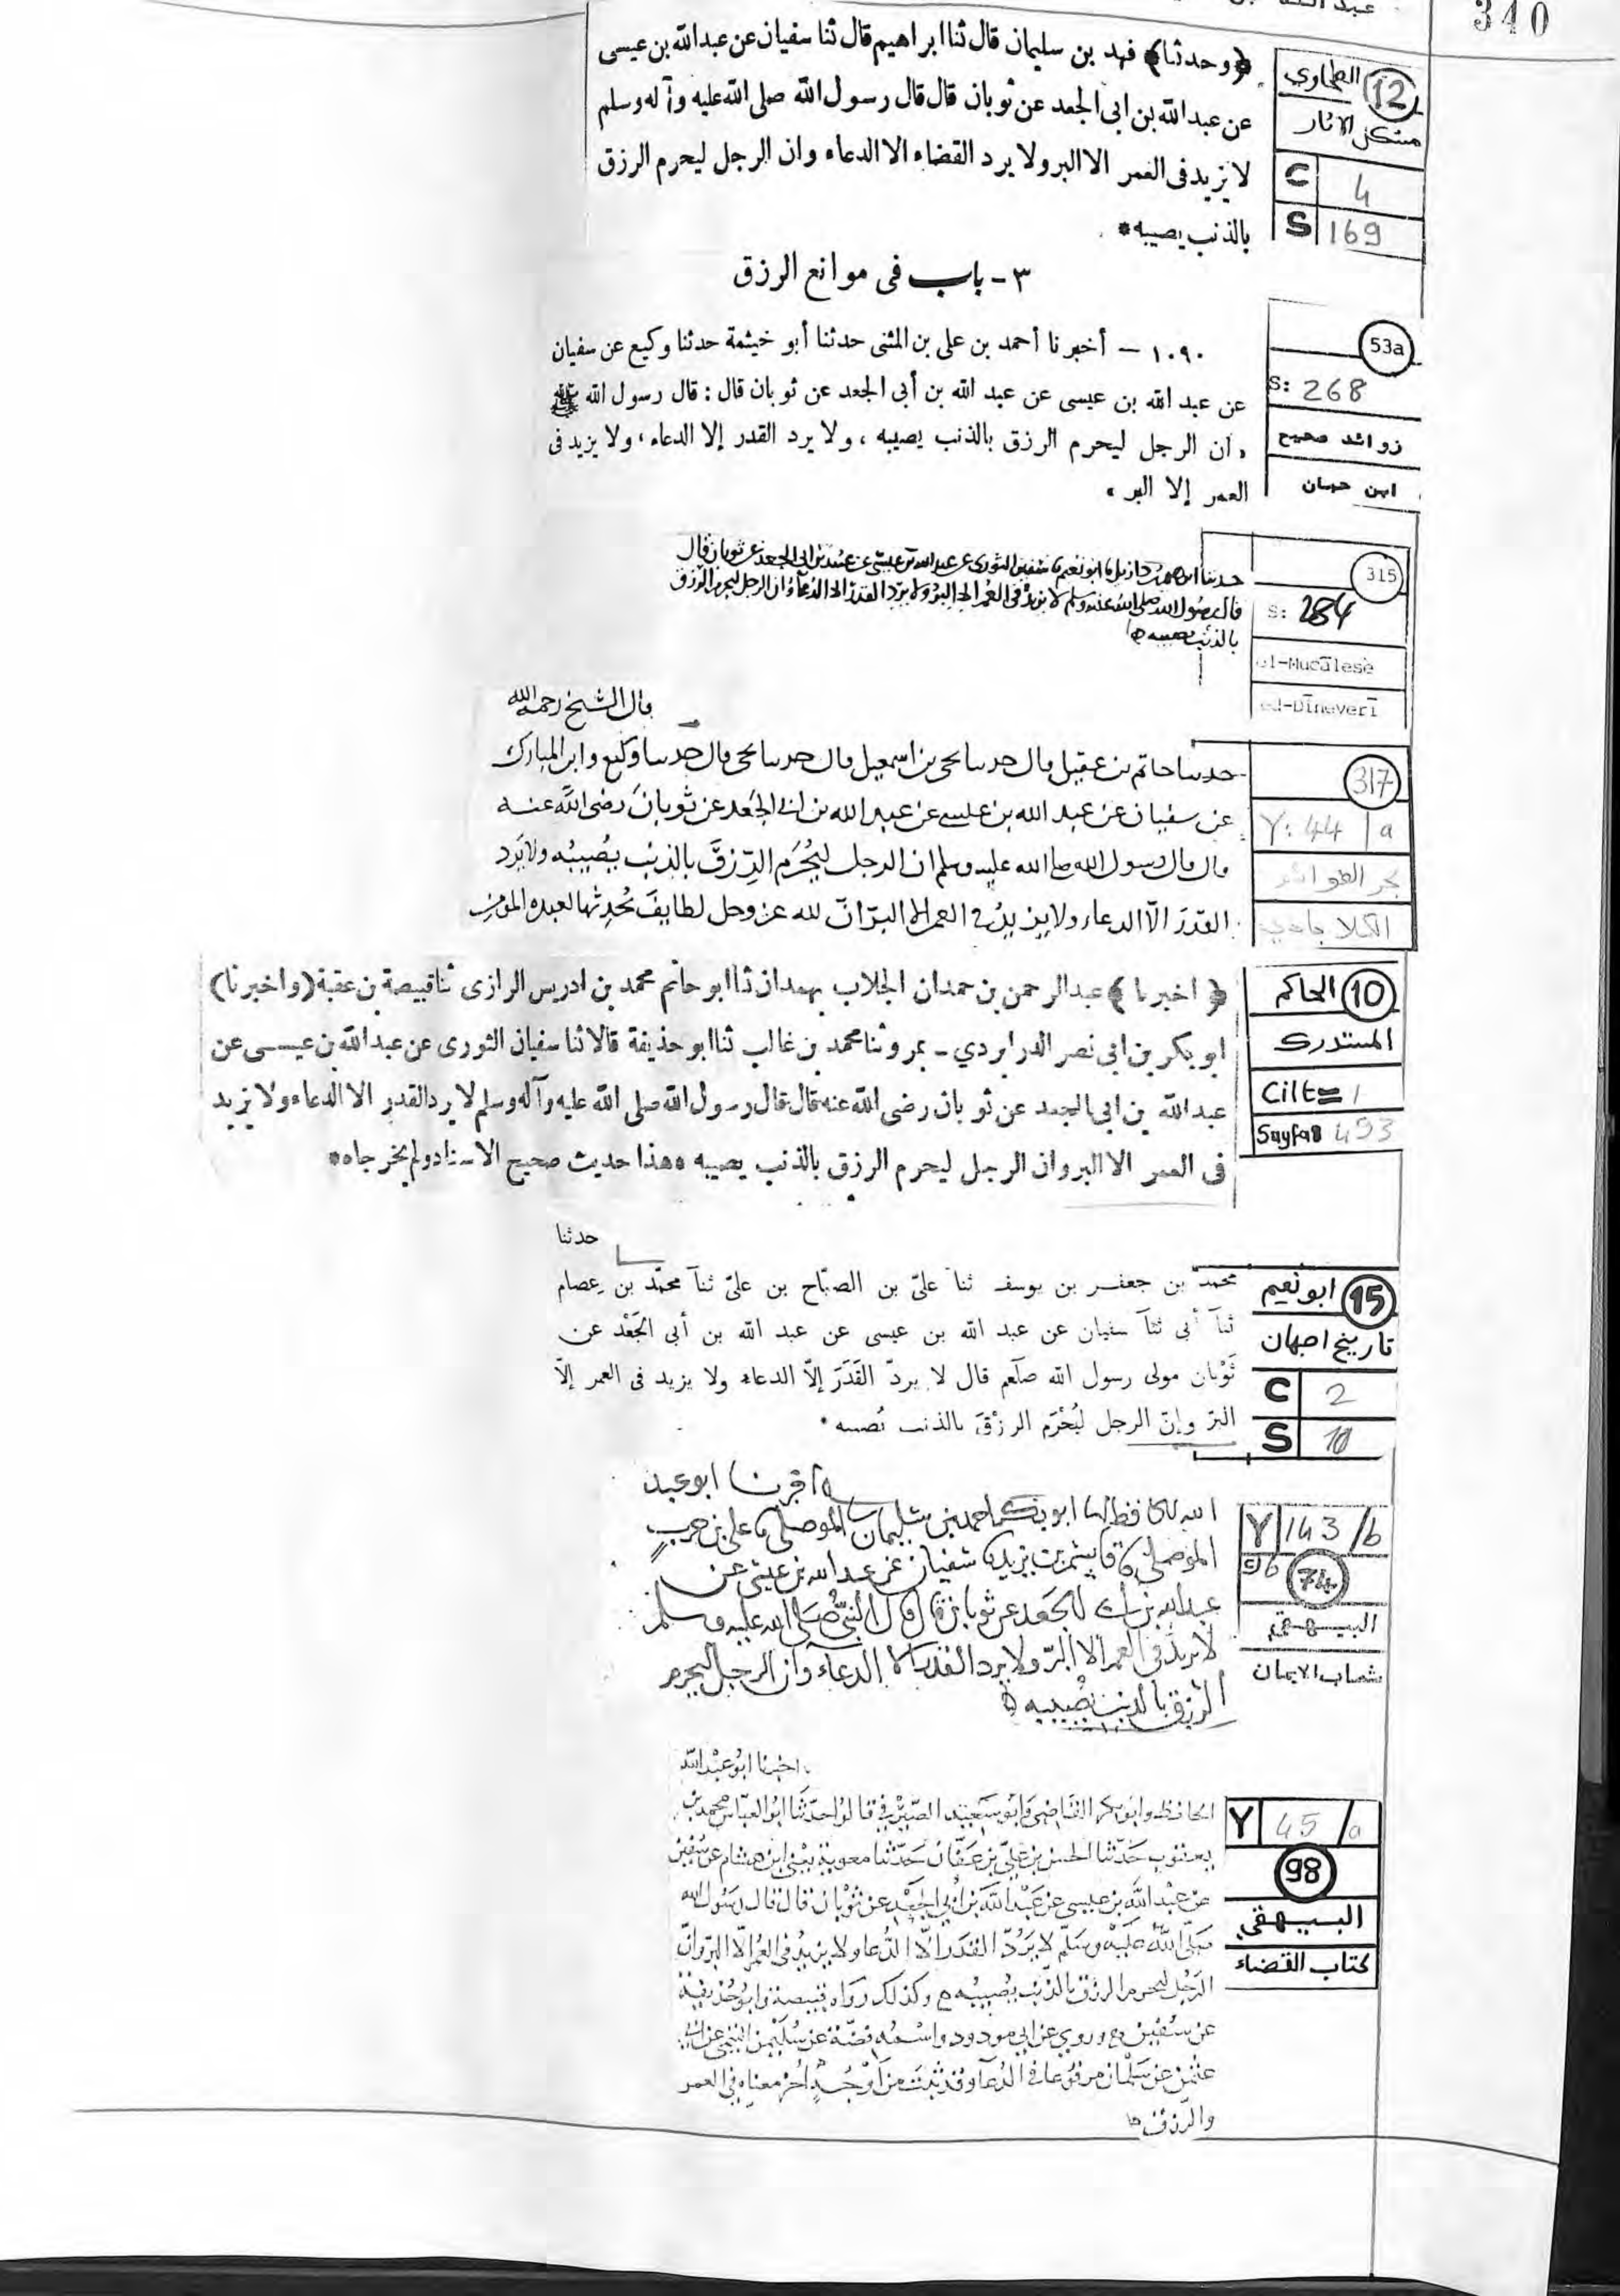 340
12 الطحاوي
مشكل الاثار
C 4
S 169
﴿وحدثنا﴾ فهد بن سليمان قال ثنا ابراهيم قال ثنا سفيان عن عبدالله بن عيسى
عن عبدالله بن ابى الجعد عن ثوبان قال قال رسول الله صلى الله عليه وآله وسلم
لا يزيد فى العمر الا البر ولا يرد القضاء الا الدعاء وان الرجل ليحرم الرزق
بالذنب يصيبه *
٣ - باب فى موانع الرزق
53a
S: 268
زوائد صحيح
ابن حبان
١٠٩٠ – أخبرنا أحمد بن على بن المثنى حدثنا أبو خيثمة حدثنا وكيع عن سفيان
عن عبد الله بن عيسى عن عبد الله بن أبى الجعد عن ثوبان قال : قال رسول الله ﷺ
، ان الرجل ليحرم الرزق بالذنب يصيبه ، ولا يرد القدر إلا الدعاء ، ولا يزيد فى
العمر إلا البر ،
315
S: 284
el-Mucâlese
ed-Dîneverî
حدثنا ابونعيم سفين الثورى عن عبد الله بن عيسى عن ابى الجعد عن ثوبان قال
قال رسول الله صلى الله عليه وسلم لا يزيد فى العمر الا البر ولا يرد القدر الا الدعاء وان الرجل ليحرم الرزق
بالذنب يصيبه
قال الشيخ رحمه الله
317
Y: 44 / a
بحر الفوائد
الكلاباذي
حدسا حاتم بن عقيل وال حدسا يحى بن اسمعيل وال حدسا يحى وال حدسا وكيع وابن المبارك
عن سفيان عن عبد الله بن عيسى عن عبد الله بن ابى الجعد عن ثوبان رضى الله عنه
وال وال رسول الله صلى الله عليه وسلم ان الرجل ليُحْرَم الرِّزقَ بالذنب يُصيبُه ولا يَرد
القدَرَ الّا الدعاء ولا يزيدُ فى العمر الا البرّ انّ لله عز وجل لطايفَ يُحْدِثها لعبده المؤمن
10 الحاكم
المستدرك
Cilt= 1
Sayfa= 493
﴿اخبرنا﴾ عبدالرحمن بن حمدان الجلاب بهمدان ثنا ابو حاتم محمد بن ادريس الرازى ثنا قبيصة بن عقبة (واخبرنا)
ابو بكر بن ابى نصر الدرابردي - بمرو ثنا محمد بن غالب ثنا ابو حذيفة قالا ثنا سفيان الثورى عن عبدالله بن عيسى عن
عبدالله بن ابى الجعد عن ثوبان رضى الله عنه قال قال رسول الله صلى الله عليه وآله وسلم لا يرد القدر الا الدعاء ولا يزيد
فى العمر الا البر وان الرجل ليحرم الرزق بالذنب يصيبه * هذا حديث صحيح الاسناد ولم يخرجاه *
15 ابونعيم
تاريخ اصبهان
C 2
S 10
حدثنا
محمد بن جعفر بن يوسف ثنا علىّ بن الصبّاح بن علىّ ثنآ محمّد بن عِصام
ثنآ أبى ثنآ سفيان عن عبد الله بن عيسى عن عبد الله بن أبى الجَعْد عن
ثَوْبان مولى رسول الله صلّعم قال لا يردّ القَدَرَ إلّا الدعاء ولا يزيد فى العمر إلّا
البرّ وإنّ الرجل ليُحْرَم الرزْقَ بالذنب يُصيبه *
Y 143 / b
74
البيهقي
شعاب الايمان
اخبرنا ابو عبد
الله الحافظ ابو بكر احمد بن سليمان الموصلى على بن حرب
الموصلى بن يزيد سفيان عن عبد الله بن عيسى عن
عبد الله بن ابى الجعد عن ثوبان قال قال النبى صلى الله عليه وسلم
لا يزيد فى العمر الا البرّ ولا يرد القدر الا الدعاء وان الرجل ليحرم
الرزق بالذنب يصيبه
Y 45 / a
98
البيهقي
كتاب القضاء
اخبرنا ابُو عبْد الله
الحافظ وابو بكر القاضى وابُو سَعيْد الصّيْرَفى قالوا حدّثنا ابُو العبّاس محمد بن
يعقوب حَدّثنا الحسن بن عليّ بن عَفّان حَدّثنا معوية يعنى ابن هشام عن سُفين
عن عبْد الله بن عيسى عن عَبْد الله بن أبي الجعْد عن ثوْبان قال قال رسُول الله
صَلّى اللّه عَليْه وسَلّم لا يَرُدّ القدَر الّا الدُّعا ولا يزيدُ فى العُمر الّا البرّ وانّ
الرَجُل ليحرم الرزق بالذّنب يصُيبُه وكذلك رَوَاه قبيصة وابُو حُذيفة
عن سُفين وروي عن ابي مودود واسْمُه فضّة عن سُليْمن التيْمى عن ابى
عثمن عن سَلْمان مرفُوعا فى الدُعآ وقد ثبتَ من اوْجُهٍ اُخر معناه فى العمر
والرّزق